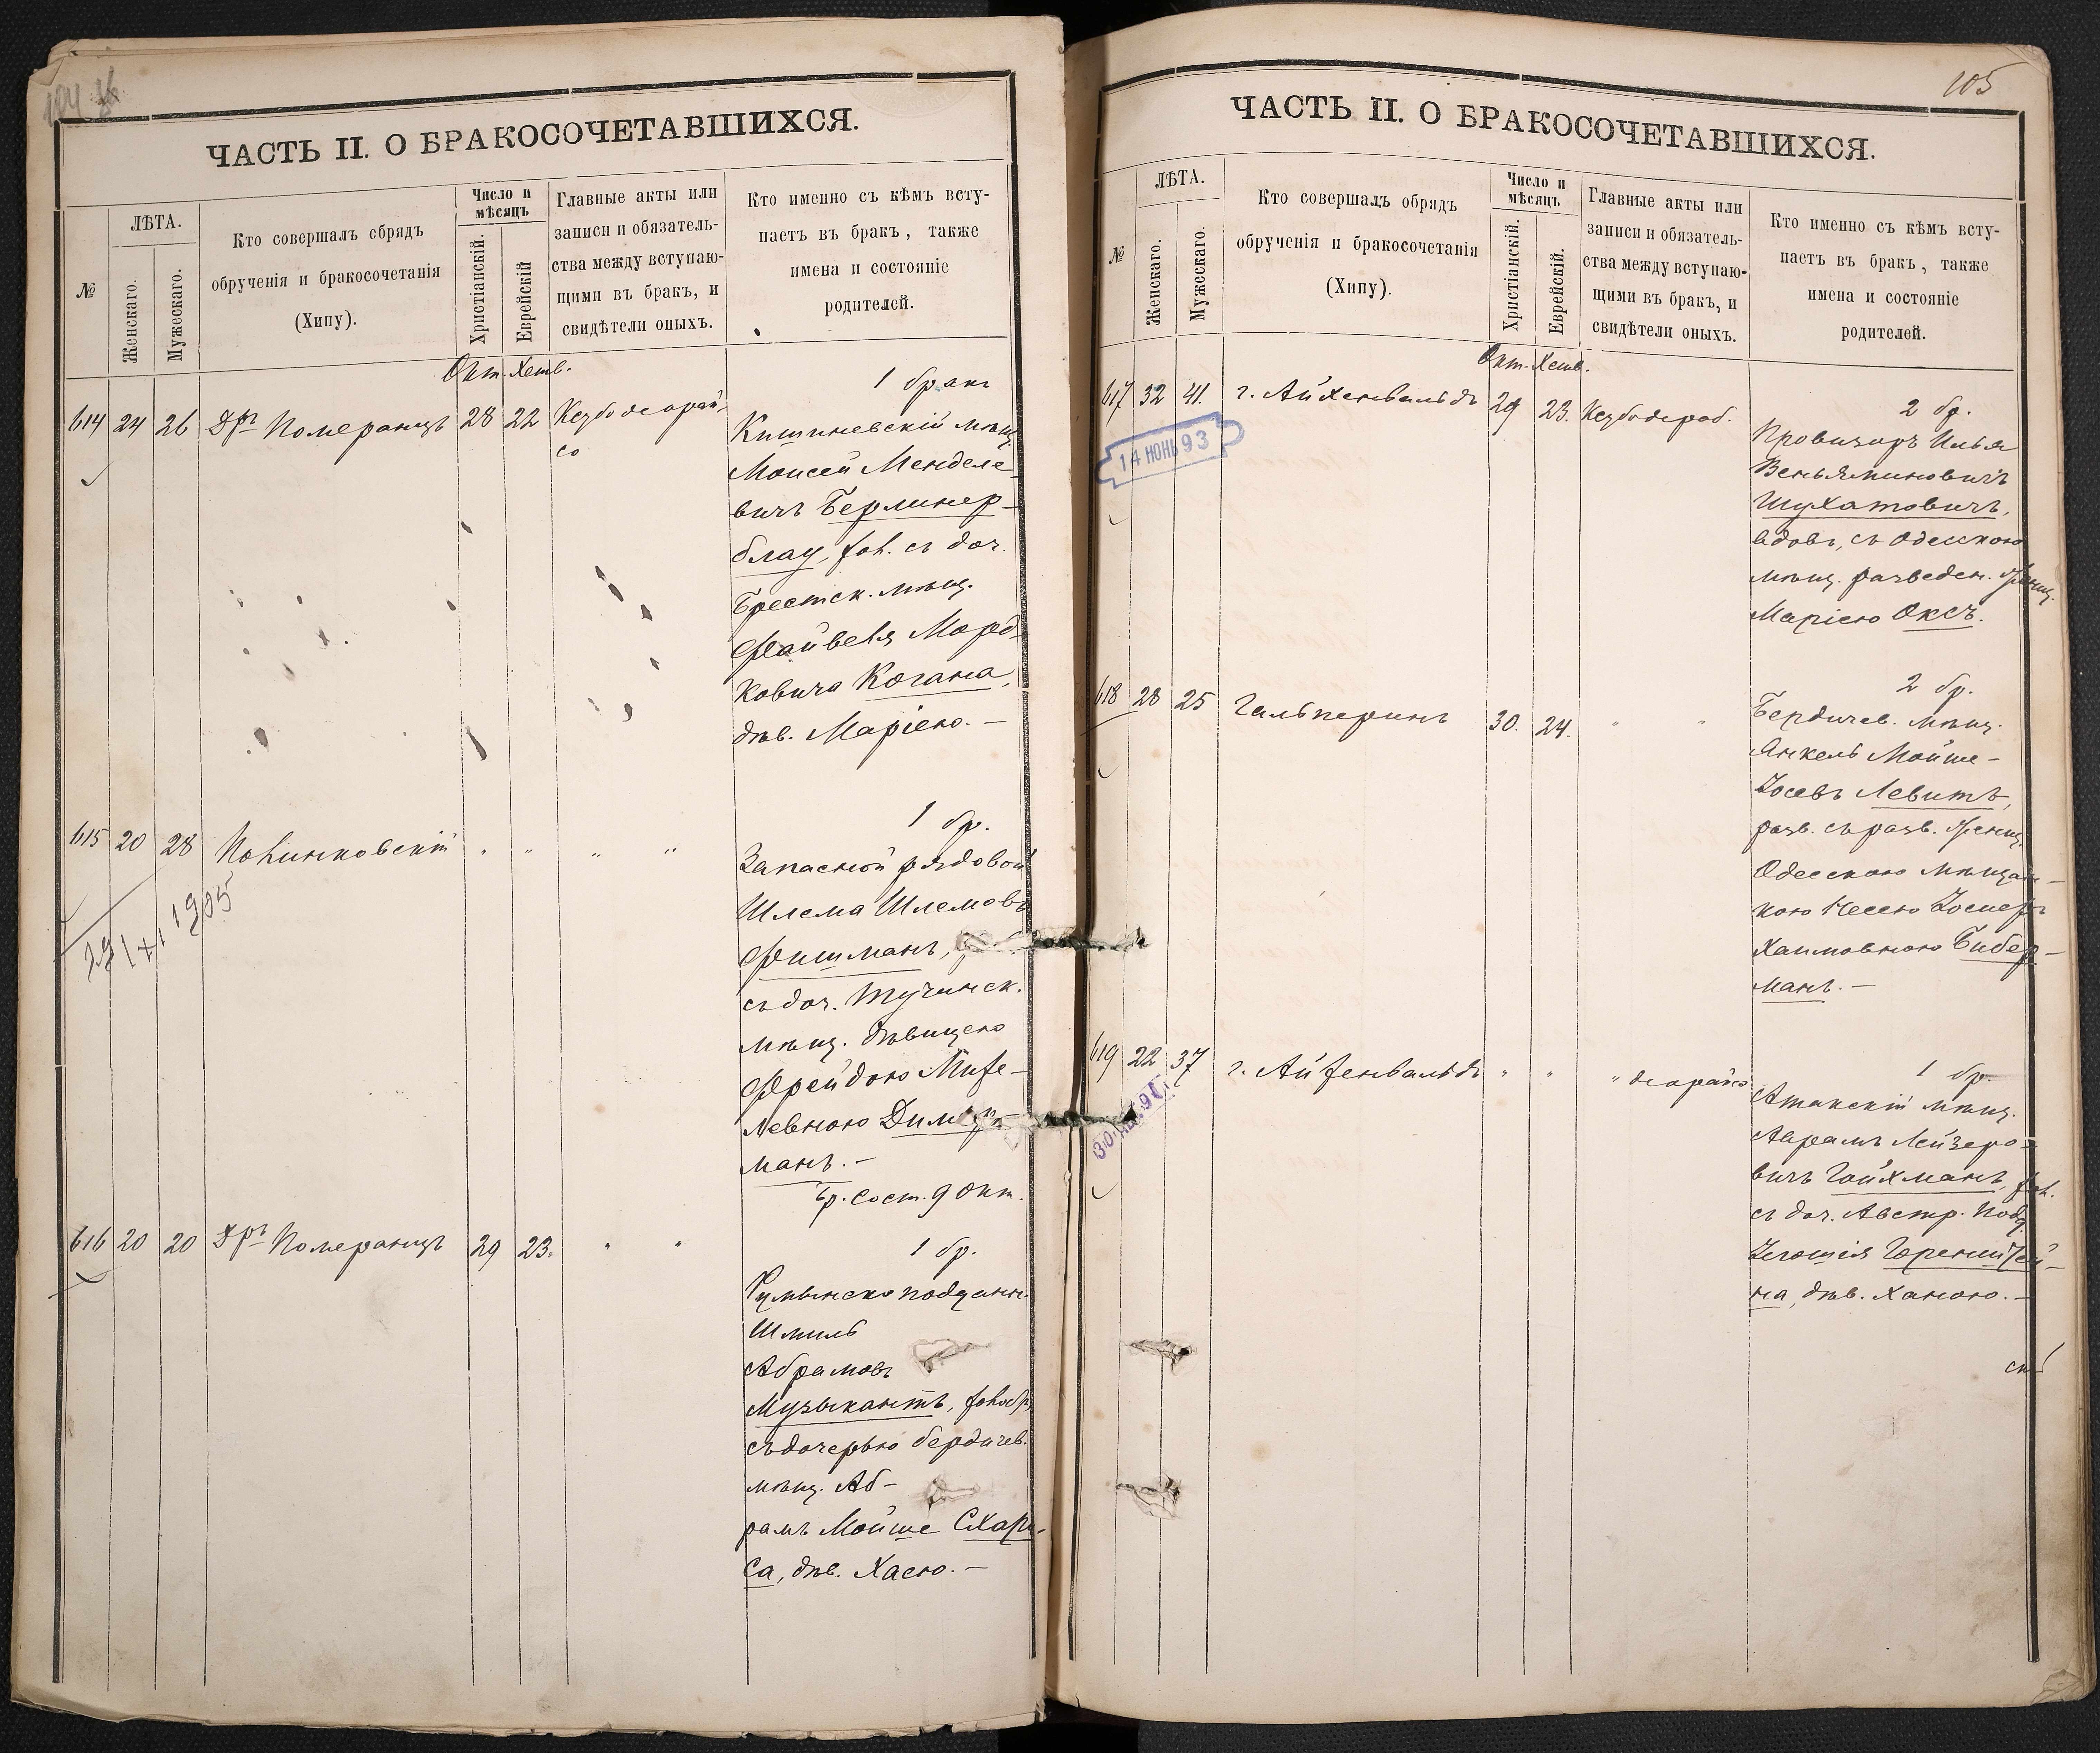 ЧАСТЬ II. О БРАКОСОЧЕТАВШИХСЯ.
№
ЛѢТА.
Женскаго.
Мужескаго.
Кто совершалъ обрядъ
обрученія и бракосочетанія
(Хипу).
Число и
мѣсяцъ
Христіанскій.
Еврейскій
Главные акты или
записи и обязатель-
ства между вступаю-
щими въ бракъ, и
свидѣтели оныхъ.
Кто именно съ кѣмъ всту-
паетъ въ бракъ, также
имена и состояніе
родителей.
Окт. Хешв.
614 24 26 Дръ Померанцъ 28 22
1 бракъ
Кишиневскій мѣщ.
Моисей Менделе-
вичъ Берлинер-
блау, хол. съ доч.
Брестск. мѣщ.
Файвеля Морд-
ковича Когана,
дѣв. Маріею. —
615 20 28 Полинковскій " " " "
29/XI 1905
1 бр.
Запасной рядовой
Шлема Шлемовъ
Фишманъ,
съ доч. Тучинск.
мѣщ. дѣвицею
Фрейдою Михе-
левною
манъ. —
Бр. сост. 9 Окт.
616 20 20 Дръ Померанцъ 29 23. " "
1 бр.
Румынско поддан.
Шмиль
Абрамовъ
Музыкантъ,
съ дочерью бердичев.
мѣщ. Аб-
рамъ Мойше Схари-
са, дѣв. Хасю. —
105
ЧАСТЬ II. О БРАКОСОЧЕТАВШИХСЯ.
№
ЛѢТА.
Женскаго.
Мужескаго.
Кто совершалъ обрядъ
обрученія и бракосочетанія
(Хипу).
Число и
мѣсяцъ
Христіанскій.
Еврейскій.
Главные акты или
записи и обязатель-
ства между вступаю-
щими въ бракъ, и
свидѣтели оныхъ.
Кто именно съ кѣмъ всту-
паетъ въ бракъ, также
имена и состояніе
родителей.
Окт. Хешв.
617 32 41. г. Айхенвальдъ 29 23.
14 ИОНЬ 93
2 бр.
Провизоръ Илья
Веньяминовичъ
Шухатовичъ,
вдовъ, съ Одесскою
мѣщ. разведен. женщ.
Маріею Оксъ.
618 28 25 Гальперинъ 30. 24. " "
2 бр.
Бердичев. мѣщ.
Янкель Мойше-
Іосевъ Левитъ,
разв. съ разв. женщ.
Одесскою мѣщан-
кою Нессею
Хаимовною Бибер-
манъ. —
619 22 37 г. Айхенвальдъ " " "
1 бр.
Атакскій мѣщ.
Аврамъ Лейзеро-
вичъ Гойхманъ, хол.
съ доч. Австр. подд.
Іегошія Горенштей-
на, дѣв. Ханою. —